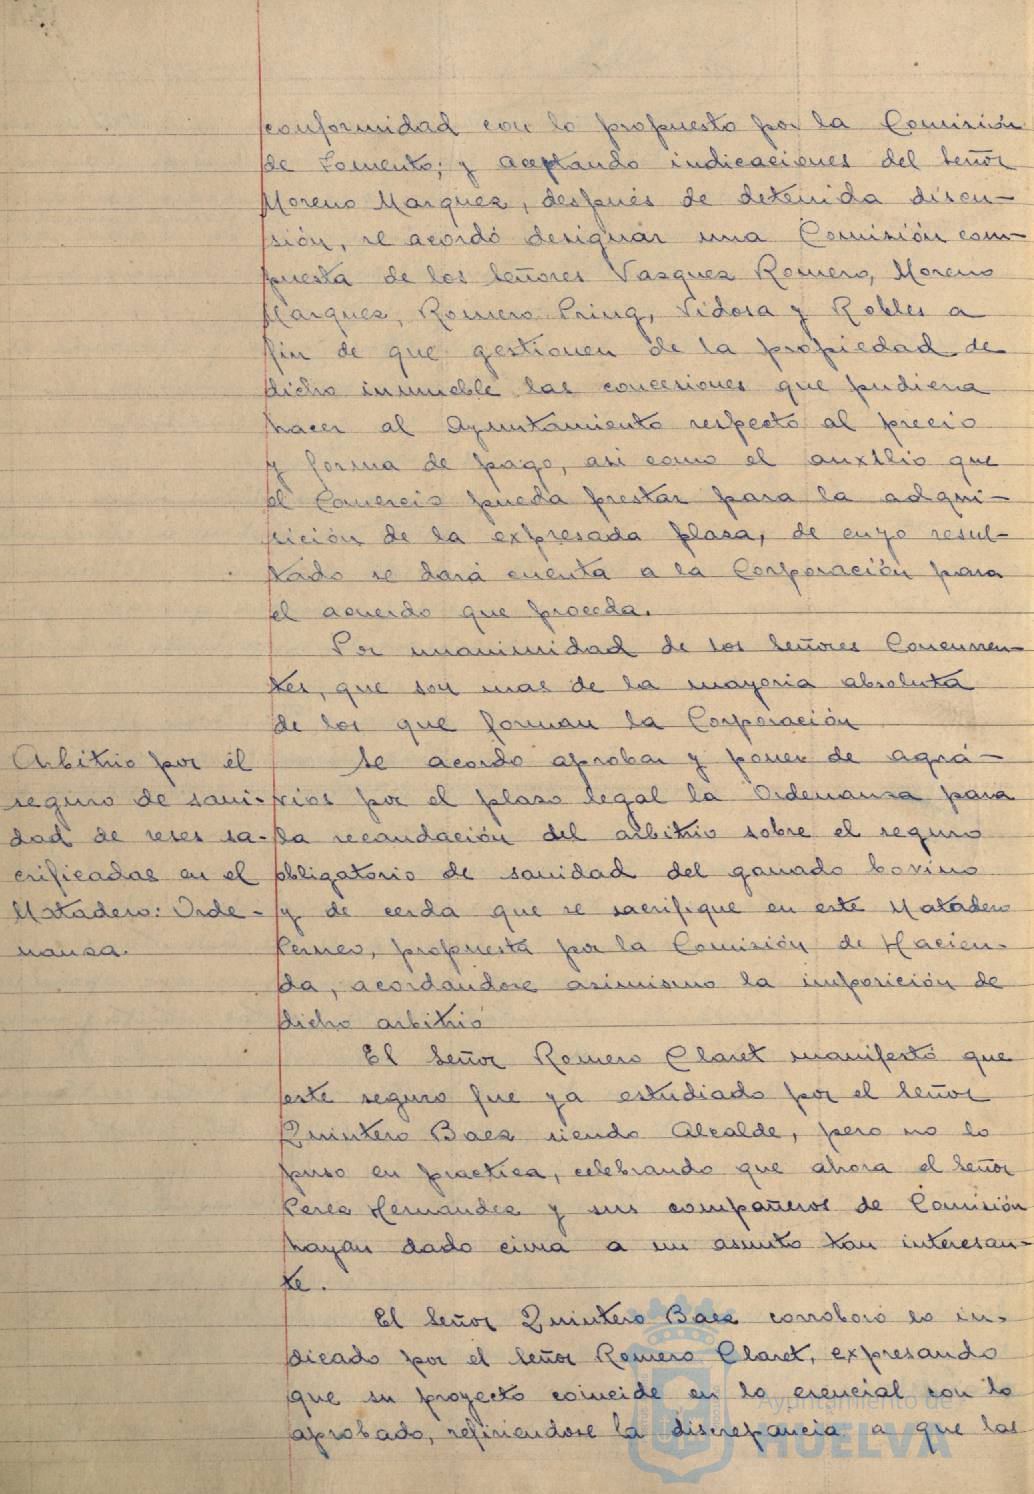 conformidad con lo propuesto por la Comisión
de Fomento; y aceptando indicaciones del Señor
Moreno Marquez, después de detenida discu-
sión, se acordó designar una Comisión com-
puesta de los Señores Vazquez Romero, Moreno
Marquez, Romero Pring, Vidosa y Robles a
fin de que gestionen de la propiedad de
dicho inmueble las concesiones que pudiera
hacer al Ayuntamiento respecto al precio
y forma de pago, asi como el auxilio que
el Comercio pueda prestar para la adqui-
sición de la expresada plaza, de cuyo resul-
tado se dará cuenta a la Corporación para
el acuerdo que proceda.
Por unanimidad de los Señores Concurren-
tes, que son mas de la mayoria absoluta
de los que forman la Corporación
Arbitrio por el
seguro de sani-
dad de reses sa-
crificadas en el
Matadero: Orde-
nanza.
Se acordo aprobar y poner de agrá-
vios por el plazo legal la Ordenanza para
la recaudación del arbitrio sobre el seguro
obligatorio de sanidad del ganado bovino
y de cerda que se sacrifique en este Matadero
Perneo, propuesta por la Comisión de Hacien-
da, acordandose asimismo la imposición de
dicho arbitrio
El Señor Romero Claret manifestó que
este seguro fue ya estudiado por el Señor
Quintero Baez siendo Alcalde, pero no lo
puso en practica, celebrando que ahora el Señor
Perez Hernandez y sus compañeros de Comisión
hayan dado cima a un asunto tan interesan-
te.
El Señor Quintero Baez corroboró lo in-
dicado por el Señor Romero Claret, expresando
que su proyecto coincide en lo esencial con lo
aprobado, refiriendose la discrepancia a que las
Ayuntamiento de
HUELVA